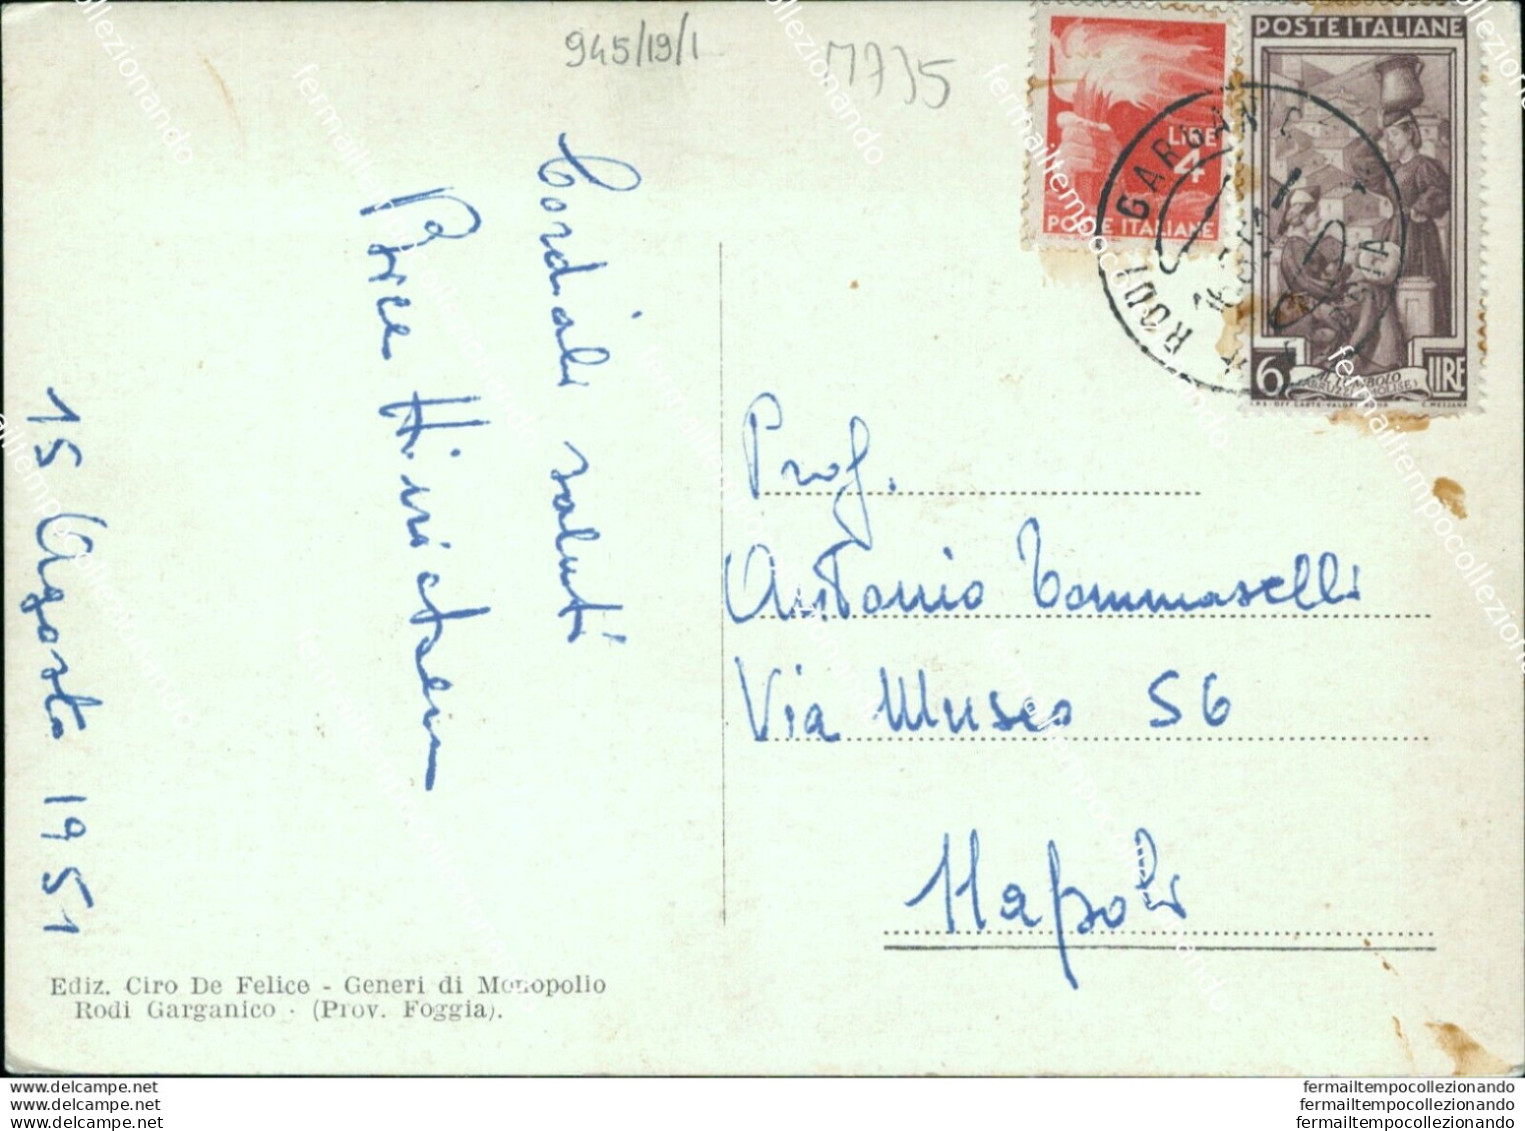 945/19/1
POSTE ITALIANE
LIRE
4
POSTE ITALIANE
6 LIRE
RODI GARGANICO
Cordiali saluti
15 Agosto 1951
Prof.
Antonio Tommaselli
Via Museo 56
Napoli
Ediz. Ciro De Felice - Generi di Monopolio
Rodi Garganico - (Prov. Foggia).
delcampe.net
delcampe.net
delcampe.net
fermailtempocollezionando
fermailtempocollezionando
fermailtempocollezionando